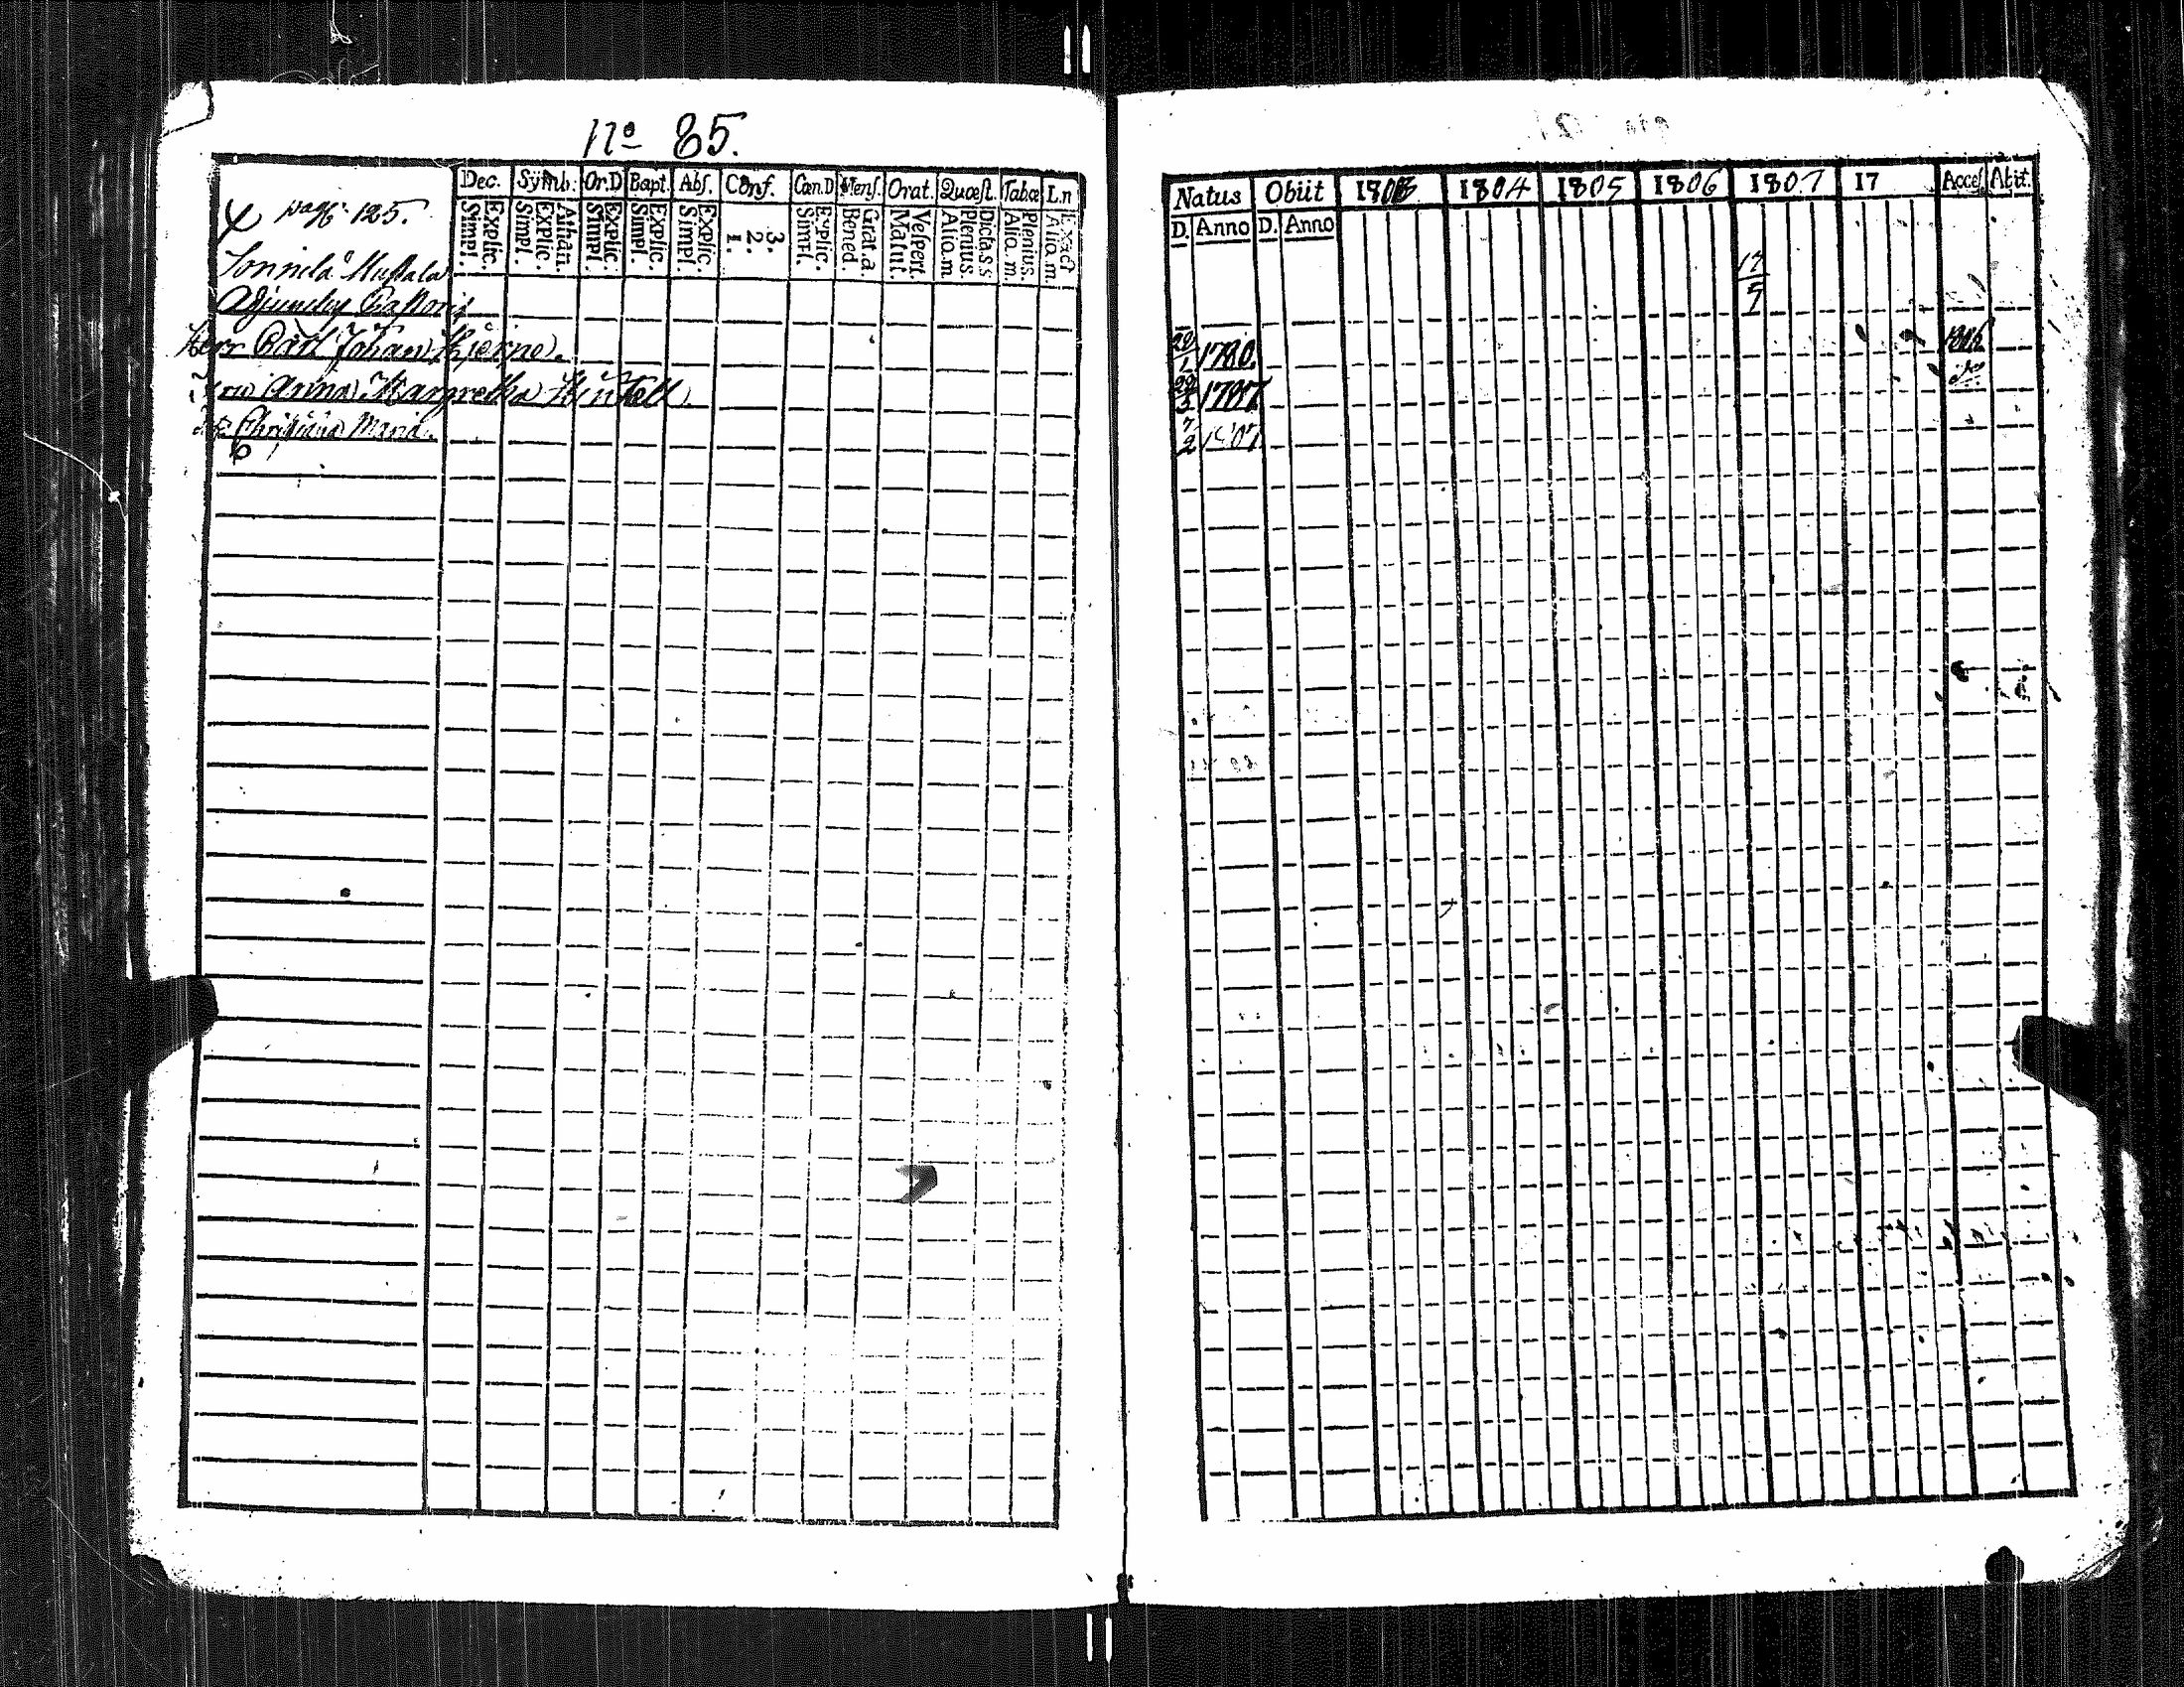 No 85.
Dec. Symb. Or.D Bapt. Abs. Conf. Cœn.D Mens. Orat. Quæst. Tabæ L.n
Explic. Simpl. Athan. Explic. Simpl. Explic. Simpl. Explic. Simpl. Explic. Simpl. 3. 2. 1. Explic. Simpl. Grat.a. Bened. Vespert. Matut. Dicta.s.s Plenius. Aliq.m. Plenius. Aliq.m. Exact Aliq.m.
pag: 125.
Sonnila Mustala
Adjunctus Pastoris
Herr Carl Johan Hjerpe.
Anna Margretha Hintzell
Christiana Maria.
Natus Obiit 1803 1804 1805 1806 1807 17 Accef. Abit.
D. Anno D. Anno
17/5
28/1 1780. 1806
29/3 1787.
7/2 1807.